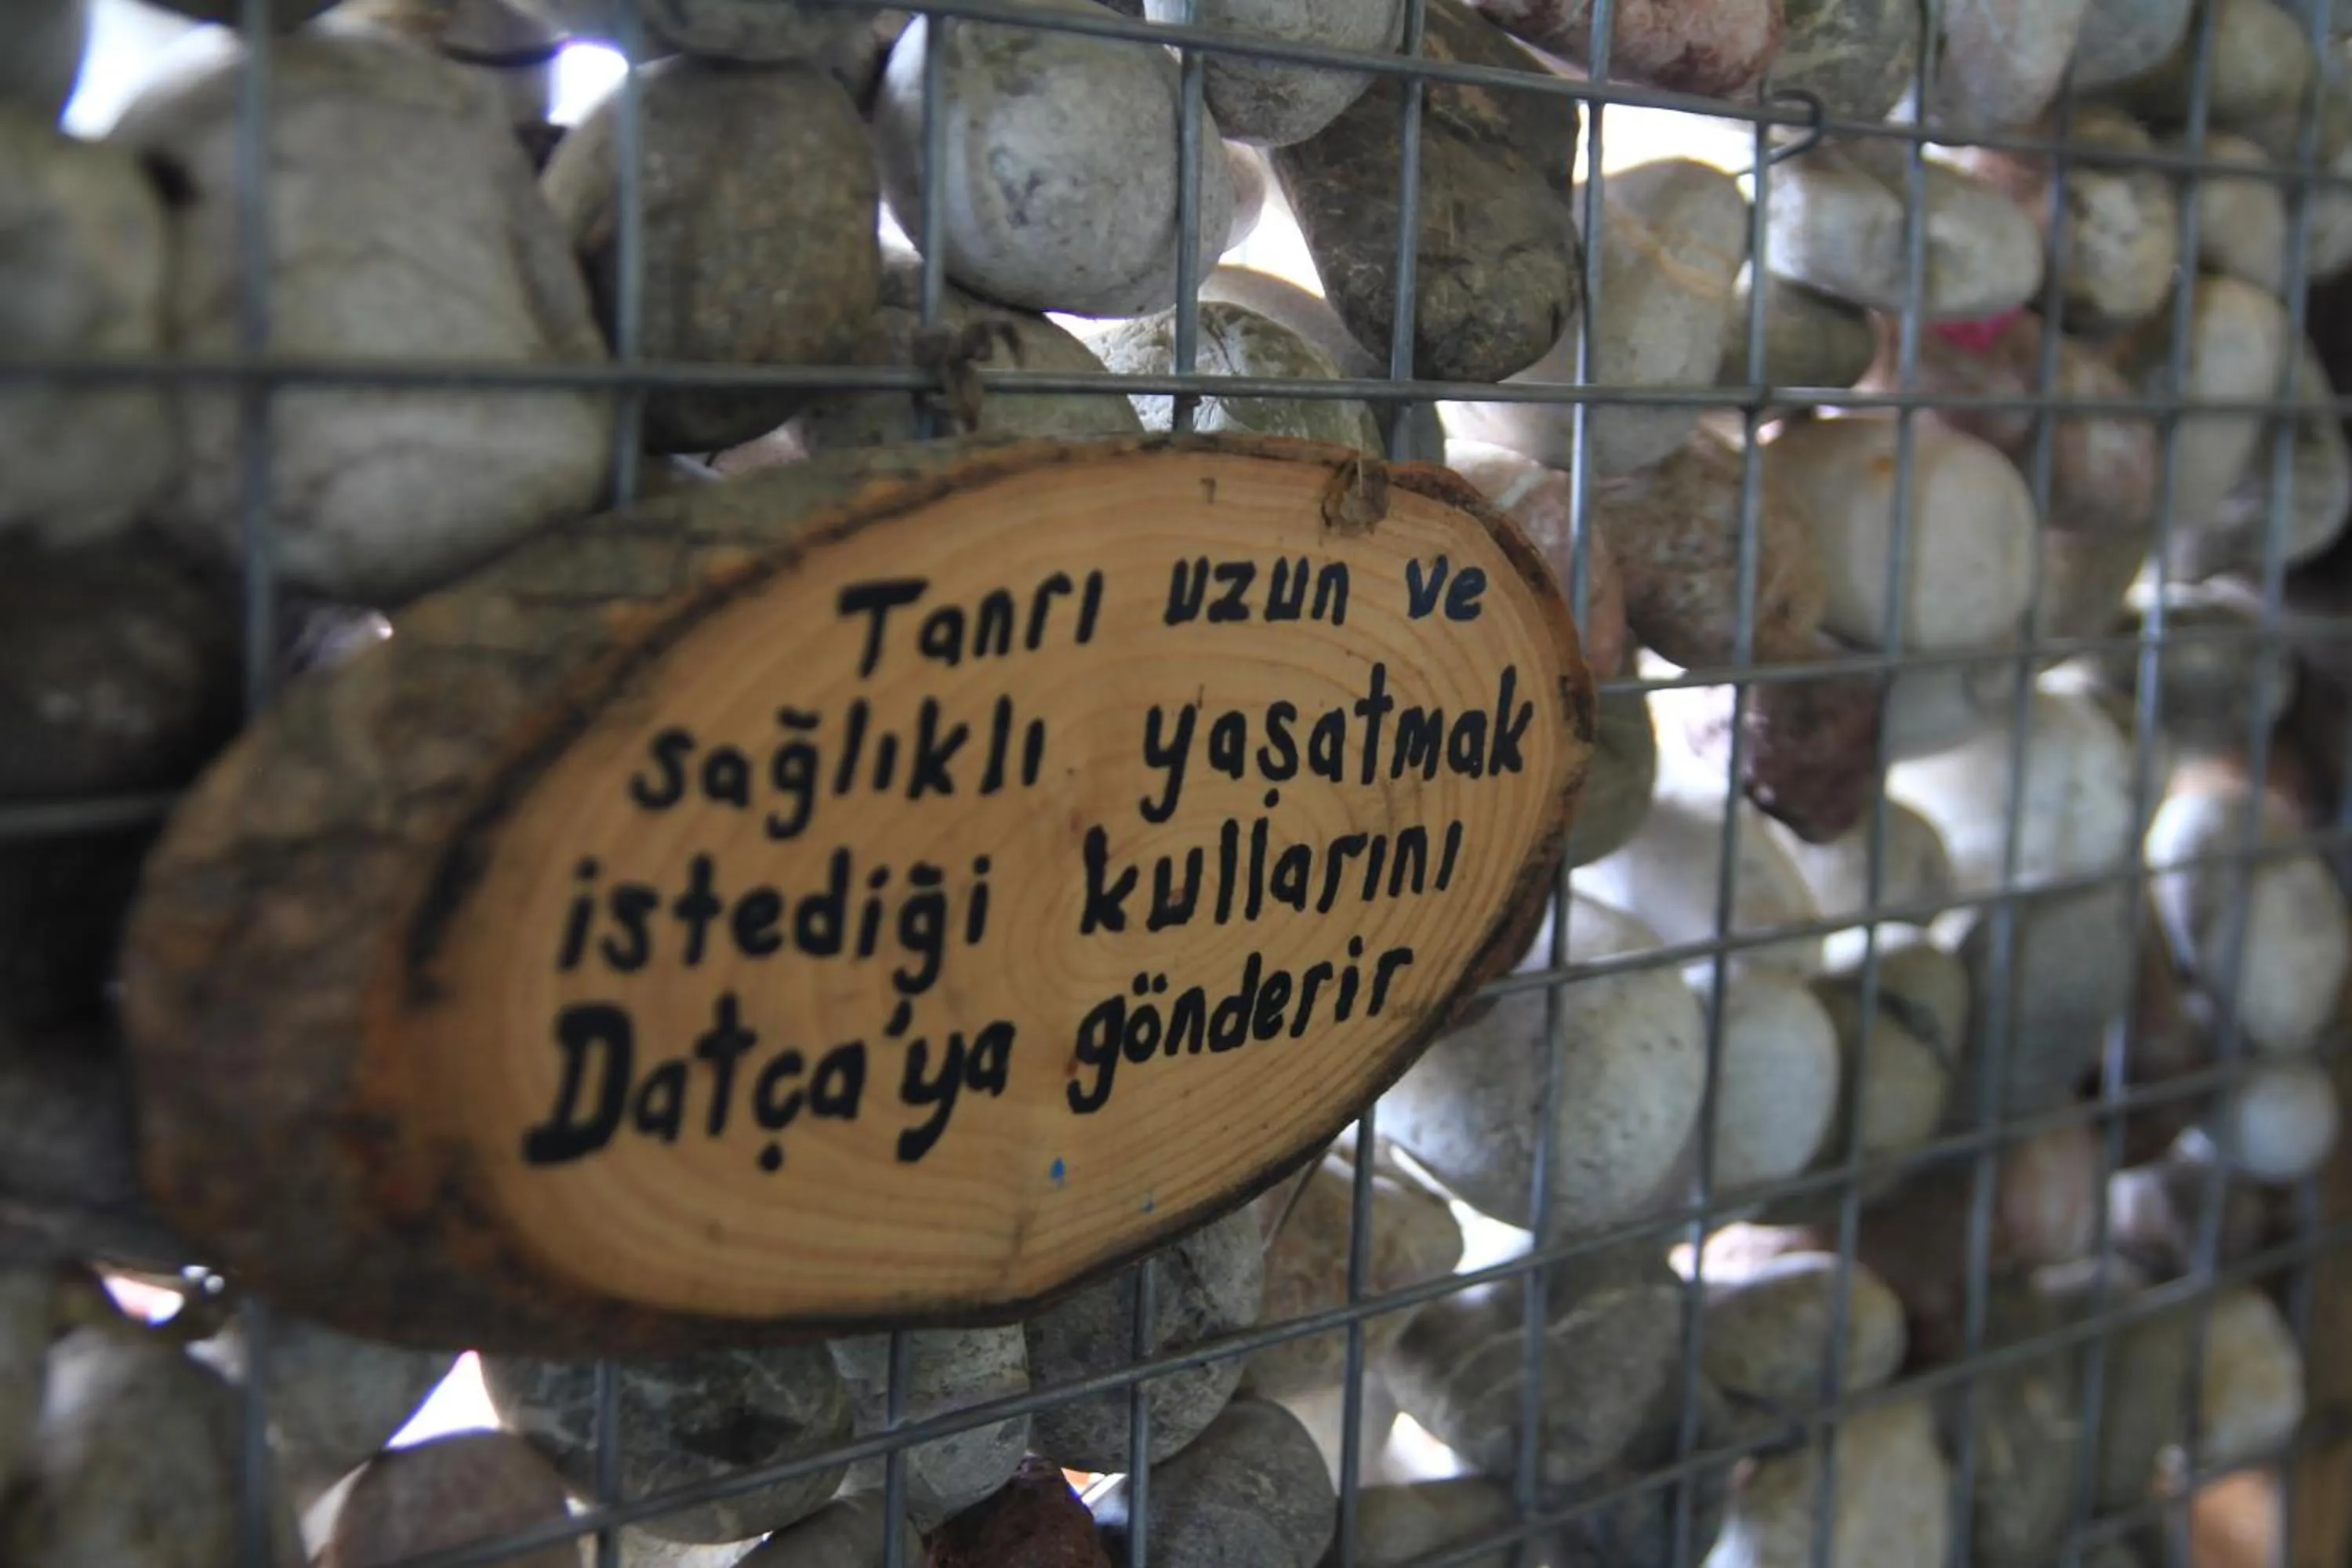 Tanrı uzun ve
sağlıklı yaşatmak
istediği kullarını
Datça'ya gönderir